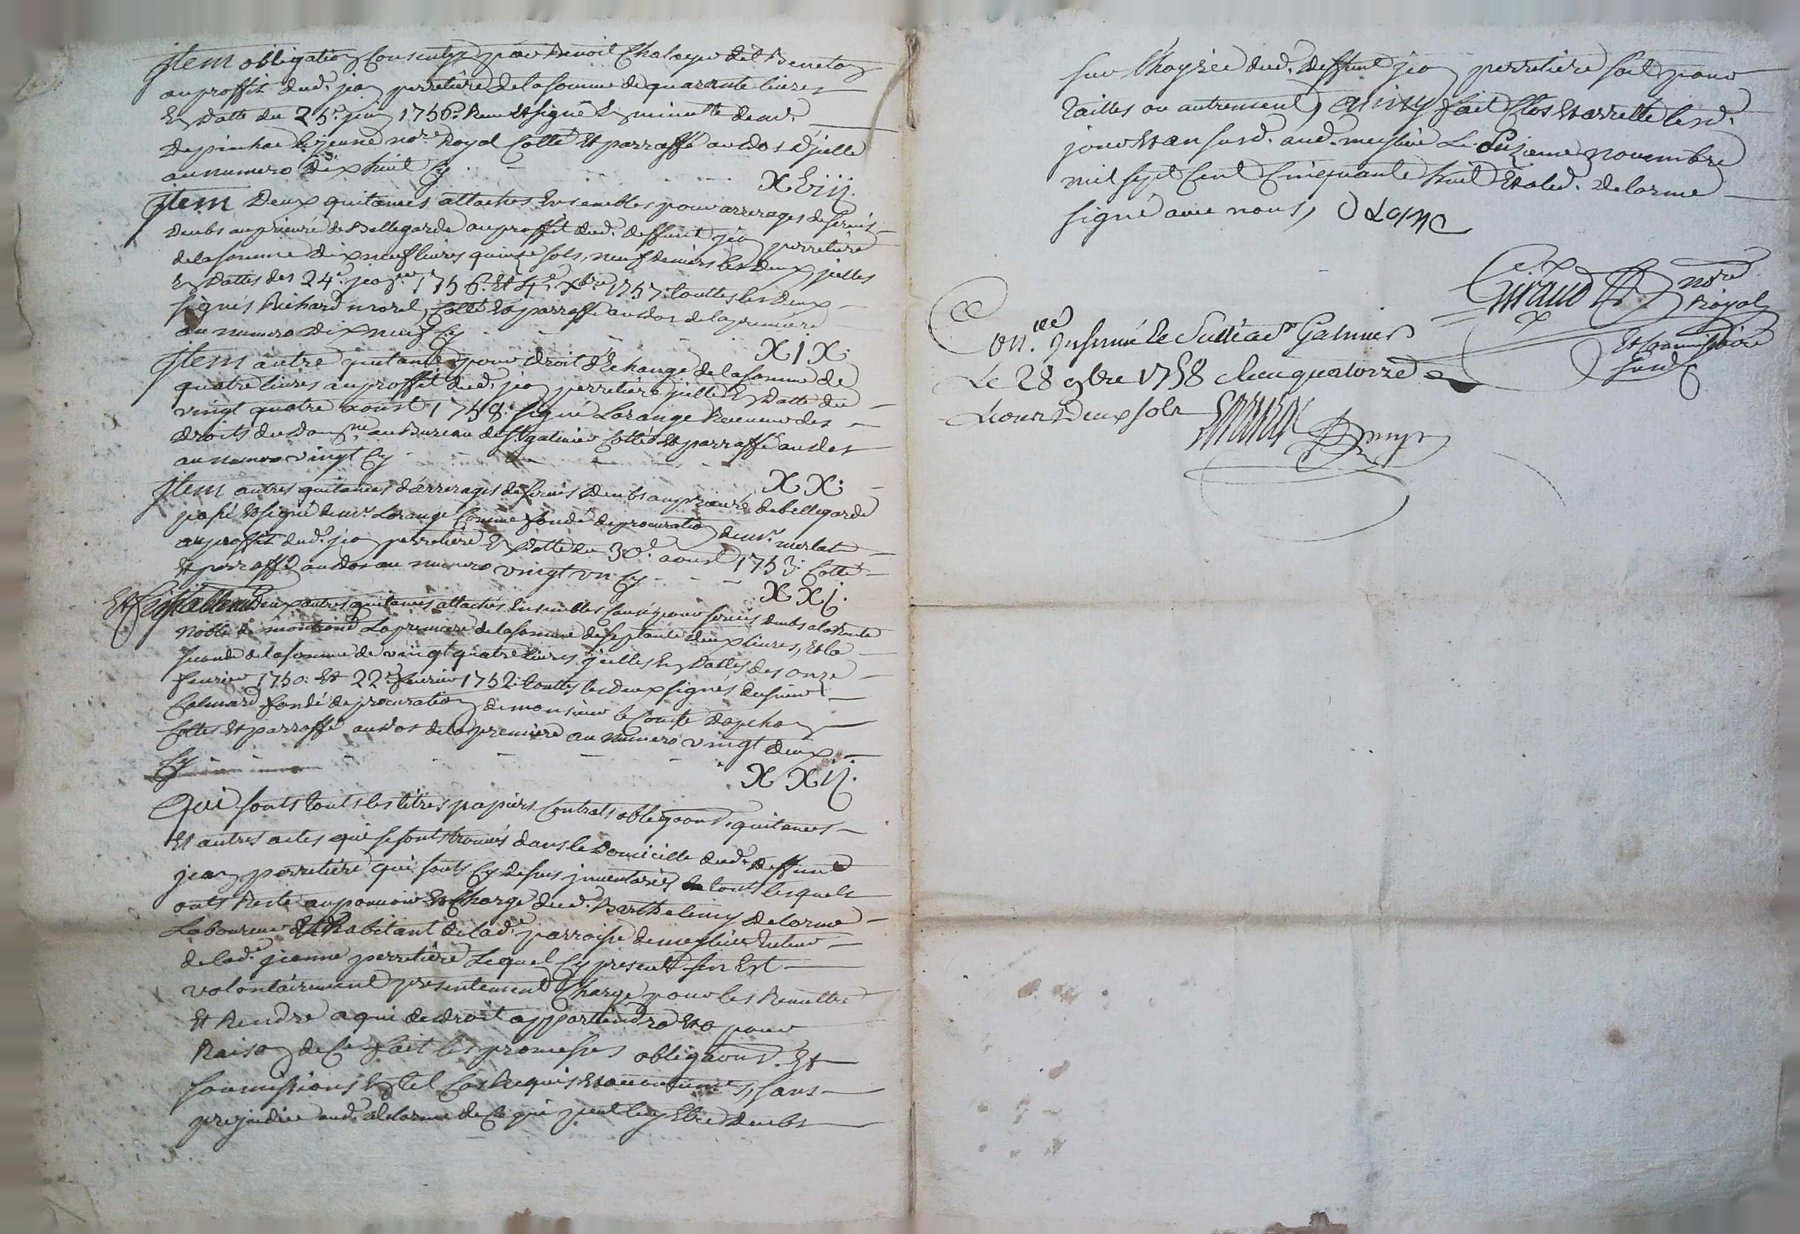 jtem obligation Consentye par Benoit Chalaye dit Beneton
au proffit dud. jean perretiere de la somme de quarante livres
En Datte du 25e. juin 1756. Reçu Et signé En minutte de me.
Depinhac le jeune nore. Royal Cotté Et parraffé au dos d'jcelle
au numero dix huit Cy
XViij.
jtem Deux quitances attachés Ensembles pour arrerages de servis
deubs au prieuré de Bellegarde au proffit dud. deffunt jean perretiere
de la somme dix neuf livres quinze sols, neuf deniers les deux jcelles
En Dattes des 24e. 1756. Et 4e. Xbre 1757. touttes les deux
signés Richard morel, Cotté Et parraffé au dos de la premiere
au numero Dix neuf Cy
XiX.
jtem autre quitance pour droit d'Echange de la somme de
quatre livres au proffit dud. jean perretiere jcelle En Datte du
vingt quatre aoust 1758. signé Lorange Receveur des
Droits du Domne. au Bureau de St galmier Cotté Et parraffé au dos
au numero vingt Cy
XX.
jtem autres quitances d'arrerages de servis deubs au prieuré de bellegarde
passé Et signé de mr. Lorange Comme fondé de procuration de mr. merlat
au proffit dud. jean perretiere En Datte du 30e. aoust 1753. Cotté
Et parraffé au dos au numero vingt un Cy
XXj.
Et finallement deux autres quitances attachés Ensembles pour servis deubs a la Rente
Noble de montrond La premiere de la somme de septante deux livres, Et la
seconde de la somme de vingt quatre livres jcelles En Dattes des onze
fevrier 1750. Et 22e. fevrier 1752. touttes les deux signés du sieur
Calmard fondé de procuration de monsieur le Comte Dapchon
Cottés Et parraffé au dos de la premiere au numero vingt deux
Cy
XXij.
Qui sonts touts les titres papiers Contrats obligaons. quitances
Et autres actes qui se sonts trouvés dans le Domicille dud. deffunt
jean perretiere qui sonts Cy dessus jnventoriés touts lesquels
onts Resté au pouvoir Et Charge dud. Barthelemy delorme
Laboureur Et habitant de lad. parroisse de meylieu tuteur
de lad. jeanne perretiere Lequel Cy present s'en Est
volontairement presentement Chargé pour les Remettre
Et Rendre a qui de droit appartiendra Et a pour
Raison de Ce fait les promesses obligaons. Et
soumissions En tel Cas Requis Et accoutumés, sans
prejudice aud. delorme de Ce qui peut luy Etre deubs
sur L'hoyrie dud. deffunt jean perretiere soit pour
tailles ou autrement, ainsy fait Clos Et arretté lesd.
jour Et an susd. aud. meylieu Le novembre
mil sept Cent Cinquante huit Et a led. delorme
signé avec nous, DLorme
Giraud nore
Royal
Et Commissaire
susd
Conlee. Insinué le Suttiad St Galmier
Le 28 9bre 1758 Reçu quatorze
Livres Deux sols